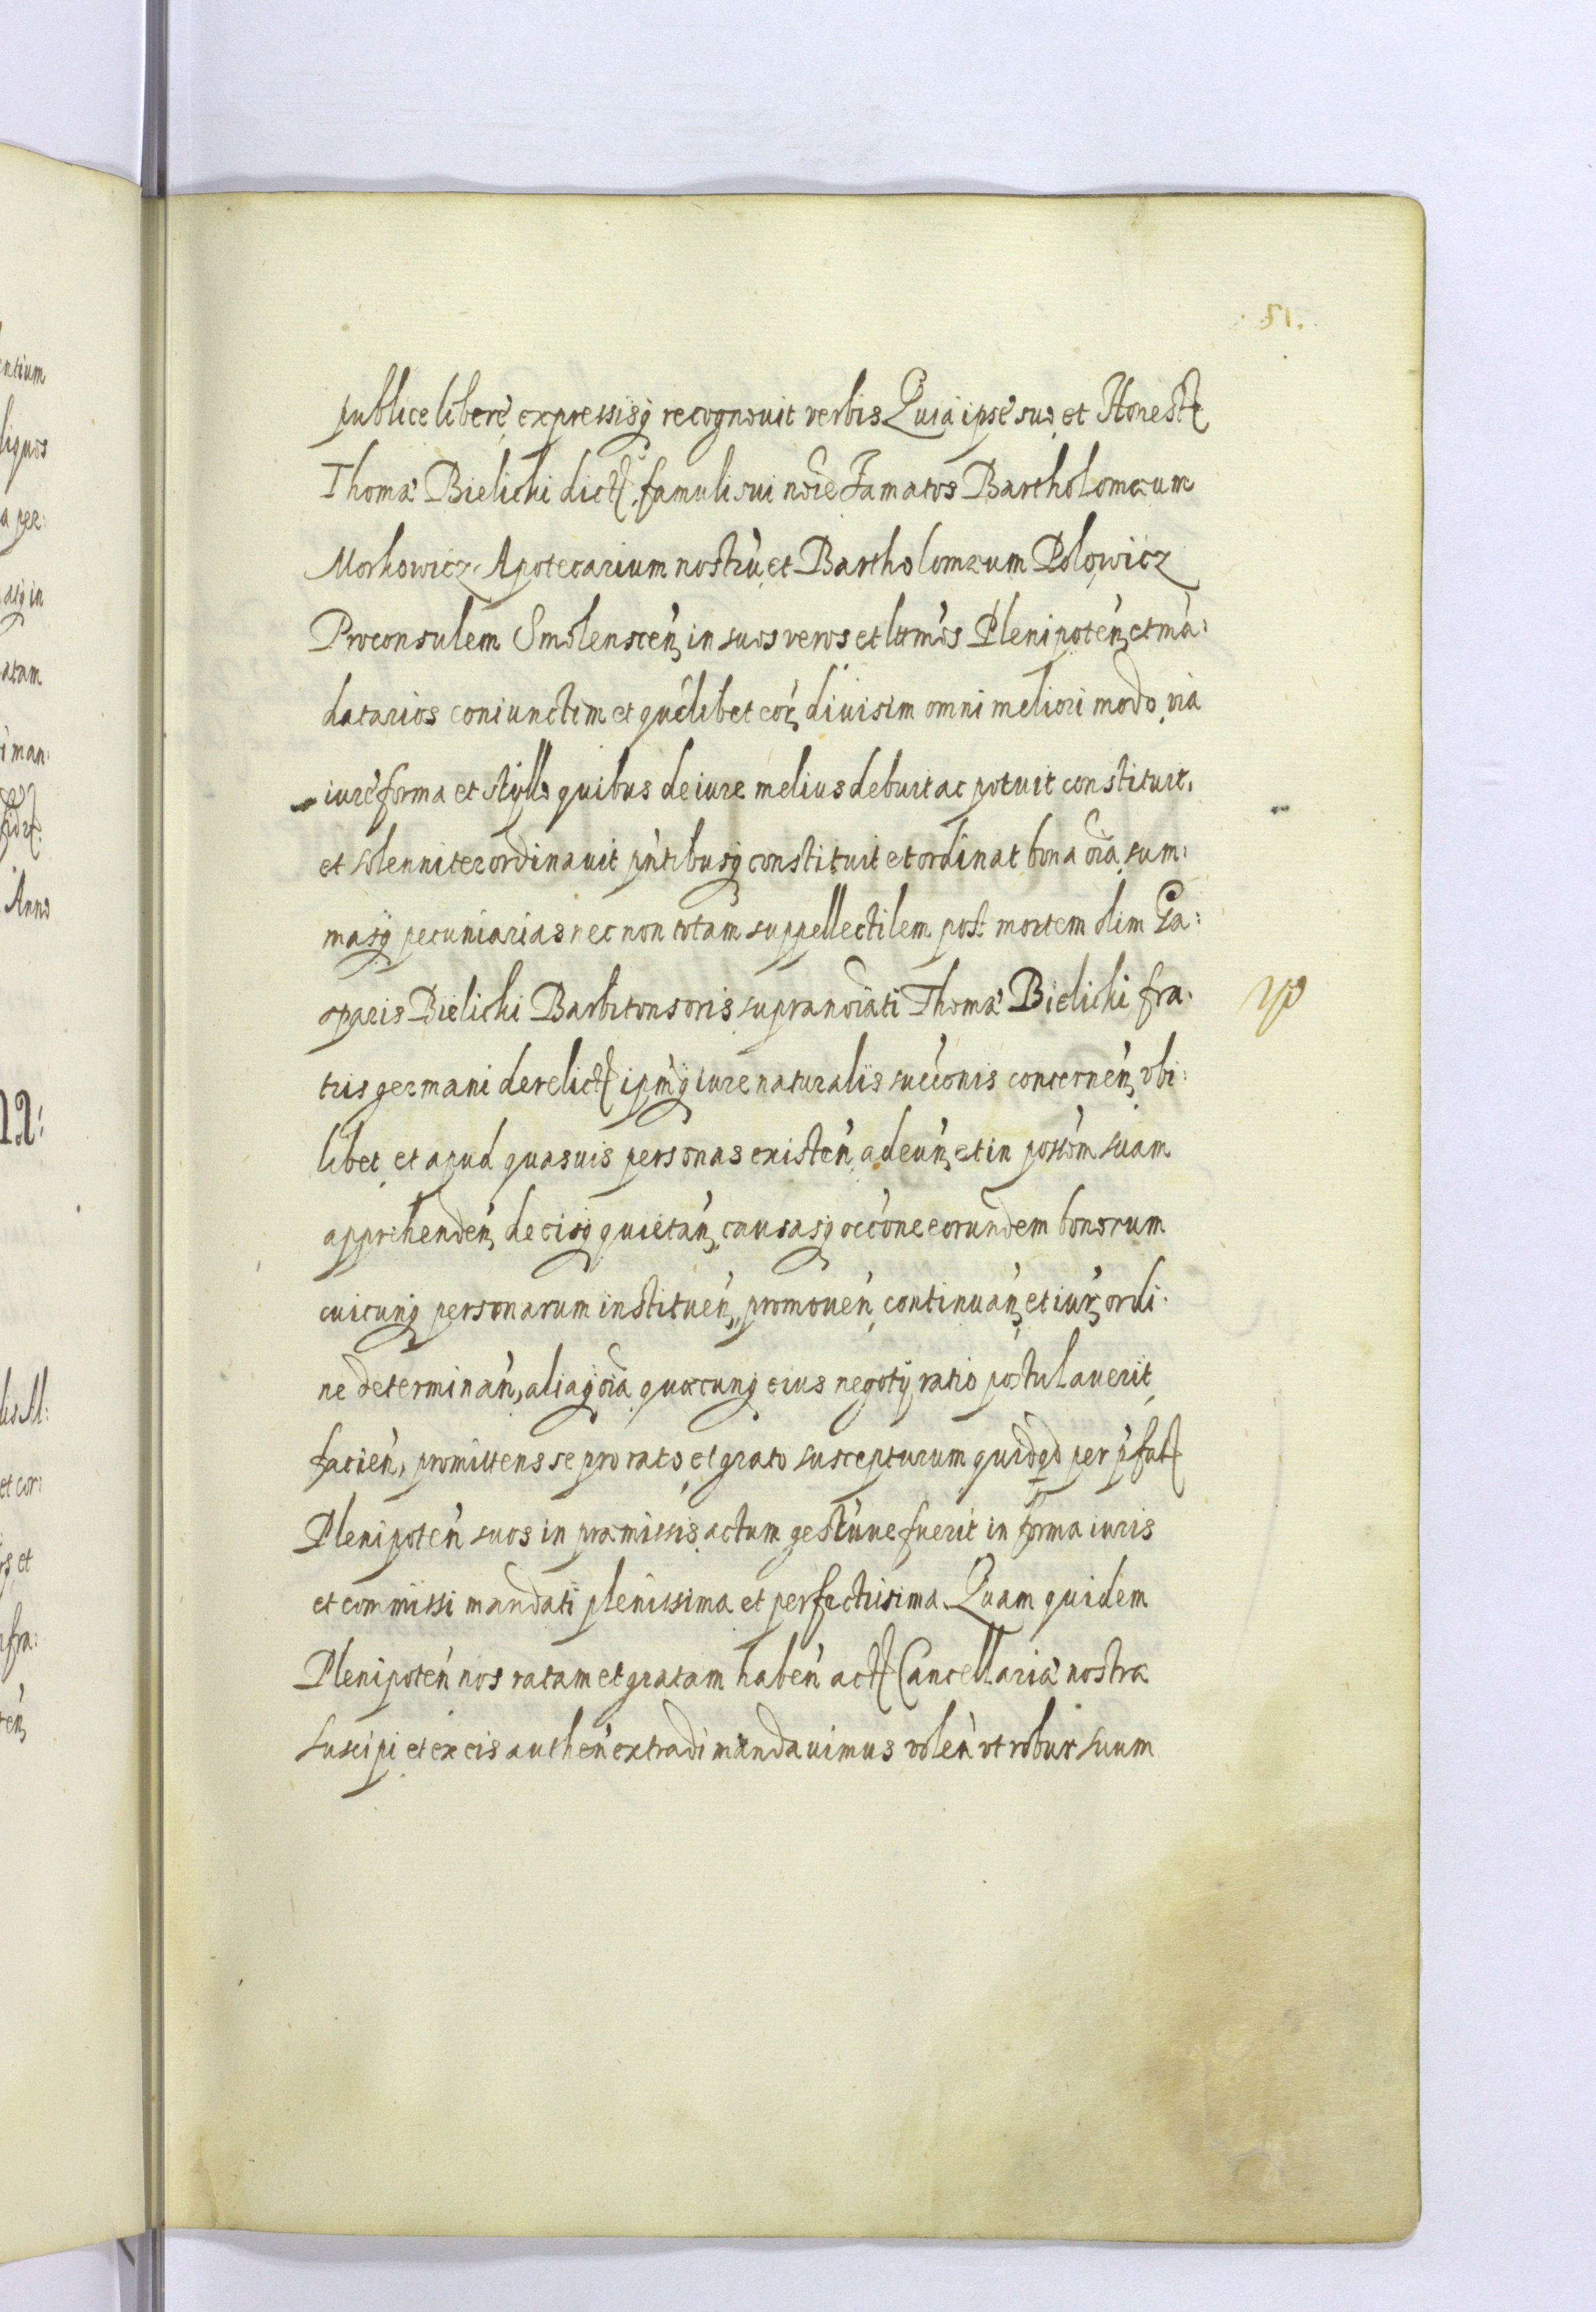 51.
publice libere expressisq3 recognouit verbis Quia ipse suo et Honest
Thomæ Bielichi dict famuli sui noĩe Famatos Bartholomæum
Morkowicz Apotecarium nostrũ et Bartholomæum Polowicz
Proconsulem Smolenscen in suos veros et lttmos Plenipoten et mã:
datarios coniunctim et quẽlibet eor diuisim omni meliori modo, via
iure forma et stylo quibus de iure melius debuit ac potuit constituit,
et solenniter ordinauit pñtibusq3 constituit et ordinat bona oĩa, sum:
masq3 pecuniarias nec non totam suppellectilem post mortem olim Ga:
sparis Bielichi Barbitonsoris supranoĩati Thomæ Bielichi fra:
tris germani derelict ipmq3 iure naturalis succõnis concernen vbi:
libet et apud quasuis personas existen adeun et in possõm suam
apprehenden de eisq3 quietan, causasq3 occõne eorundem bonorum
cuicunq3 personarum instituen, promouen, continuan, et iur ordi:
ne determinan, aliaq3 oĩa quæcunq3 eius negotÿ ratio postulauerit
facien, promittens se pro rato et grato suscepturum quidqd per pfat
Plenipoten suos in præmissis actum gestũue fuerit in forma iuris
et commissi mandati plenissima et perfectissima. Quam quidem
Plenipoten nos ratam et gratam haben act Cancellariæ nostræ
suscipi et ex eis authen extradi mandauimus volen vt robur suum